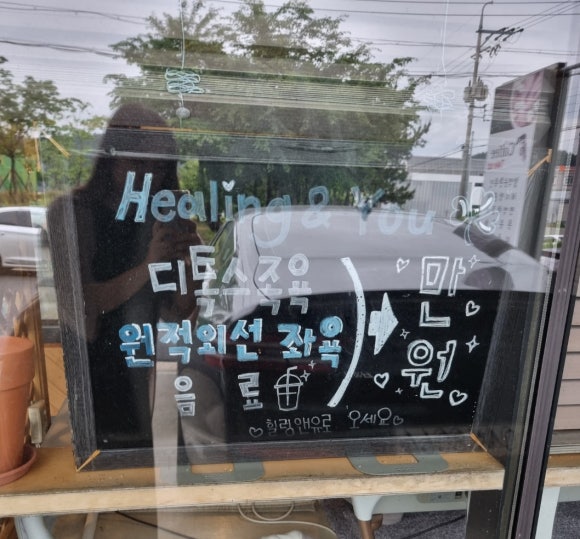 Healing & You
디톡스족욕
원적외선 좌욕
음료
만원
♡힐링앤유로 오세요♡
Coffee